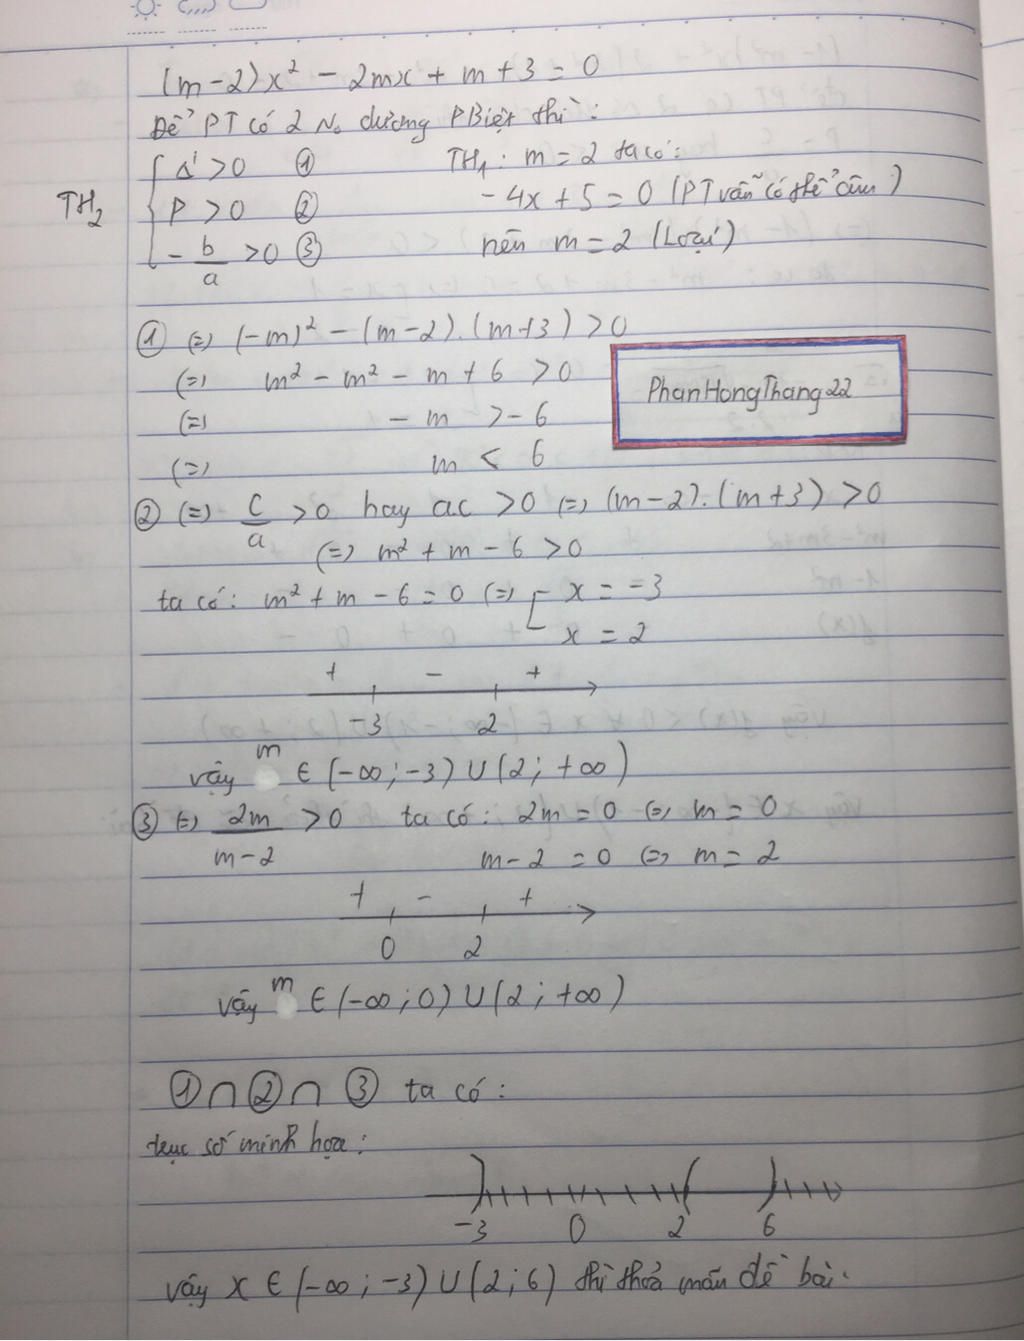 (m-2)x² - 2mx + m + 3 = 0
Để PT có 2 No dương PBiệt thì:
TH₂
Δ' > 0 ①
P > 0 ②
-b/a > 0 ③
TH₁: m = 2 ta có:
-4x + 5 = 0 (PT vẫn có thể câm)
nên m = 2 (Loại)
① (=) (-m)² - (m-2).(m+3) > 0
(=) m² - m² - m + 6 > 0
(=) - m > -6
(=) m < 6
PhanHongThang22
② (=) c/a > 0 hay ac > 0 (=) (m-2).(m+3) > 0
(=) m² + m - 6 > 0
ta có: m² + m - 6 = 0 (=) [ x = -3
x = 2
+ - +
-3 2
vậy m ∈ (-∞; -3) ∪ (2; +∞)
③ (=) 2m/m-2 > 0 ta có: 2m = 0 (=) m = 0
m-2 = 0 (=) m = 2
+ - +
0 2
vậy m ∈ (-∞; 0) ∪ (2; +∞)
① ∩ ② ∩ ③ ta có:
trục số minh họa:
-3 0 2 6
vậy x ∈ (-∞; -3) ∪ (2; 6) thì thoả mãn đề bài.